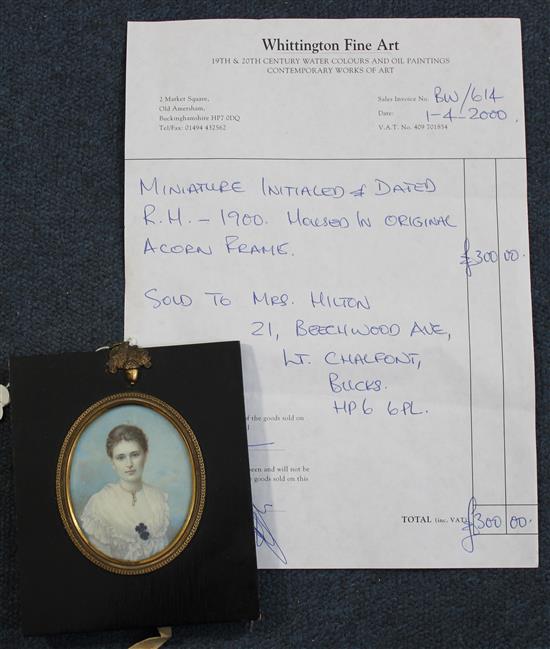 Whittington Fine Art
19TH & 20TH CENTURY WATER COLOURS AND OIL PAINTINGS
CONTEMPORARY WORKS OF ART
2 Market Square,
Old Amersham,
Buckinghamshire HP7 0DQ
Tel/Fax: 01494 432562
Sales Invoice No. BW/614
Date: 1-4-2000.
V.A.T. No. 409 701834
MINIATURE INITIALED & DATED
R.H. - 1900. HOUSED IN ORIGINAL
ACORN FRAME. £300 00.
SOLD TO MRS. HILTON
21, BEECHWOOD AVE,
LT. CHALFONT,
BUCKS.
HP6 6PL.
of the goods sold on
een and will not be
goods sold on this
TOTAL (inc. VAT) £300 00.